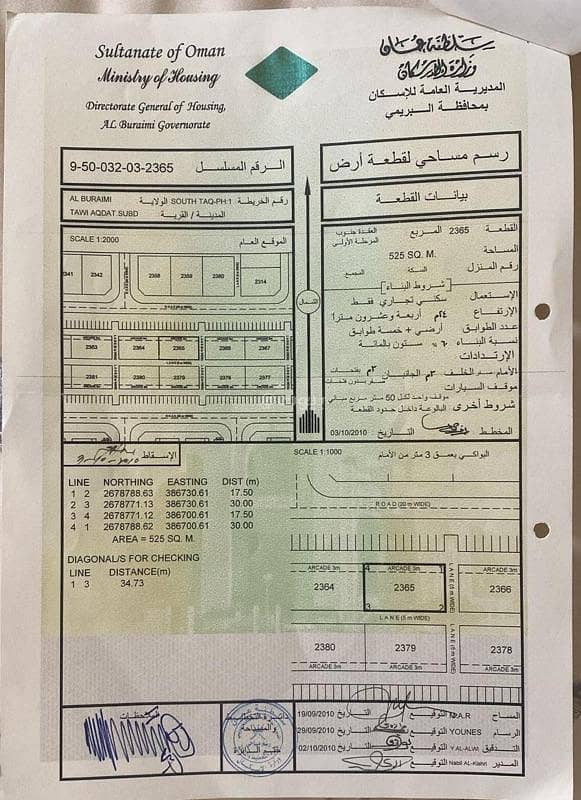 Sultanate of Oman
Ministry of Housing
Directorate General of Housing,
AL Buraimi Governorate
سلطنة عمان
وزارة الإسكان
المديرية العامة للإسكان
بمحافظة البريمي
الرقم المسلسل 9-50-032-03-2365
رقم الخريطة SOUTH TAQ-PH:1 الولاية AL BURAIMI
المدينة / القرية: TAWI AQDAT.SUBD
رسم مساحي لقطعة أرض
بيانات القطعة
SCALE 1:2000 الموقع العام
2341 2342 2358 2359 2360 2314
2363 2364 2365 2366 2367
2381 2380 2379 2378 2377
الشمال
القطعة 2365 المربع العقدة جنوب
المرحلة الأولى
المساحة 525 SQ. M.
رقم المنزل السكة المجمع
[شروط البناء]
الإستعمال سكني تجاري فقط
الإرتفاع ٢٤م أربعة وعشرون مترا
عدد الطوابق أرضي + خمسة طوابق
نسبة البناء ٦٠% ستون بالمائة
الإرتدادات
الأمام صم الخلف ٣م الجانبان ٣م بفتحات
صفر بدون فتحات
موقف السيارات موقف واحد لكل 50 متر مربع مباني
شروط أخرى البالوعة داخل حدود القطعة
المخطط التاريخ 03/10/2010
الإسقاط
LINE NORTHING EASTING DIST (m)
1 2 2678788.63 386730.61 17.50
2 3 2678771.13 386730.61 30.00
3 4 2678771.12 386700.61 17.50
4 1 2678788.62 386700.61 30.00
AREA = 525 SQ. M.
DIAGONAL/S FOR CHECKING
LINE DISTANCE(m)
1 3 34.73
SCALE 1:1000 البواكي بعمق 3 متر من الأمام
ROAD (20 m WIDE)
ARCADE 3m ARCADE 3m ARCADE 3m
4 1
2364 2365 2366
3 2
LANE (5 m WIDE)
LANE (6 m WIDE)
LANE (6 m WIDE)
2380 2379 2378
ARCADE 3m ARCADE 3m ARCADE 3m
المساح M.A.R التوقيع التاريخ 19/09/2010
الرسام YOUNES التوقيع التاريخ 29/09/2010
التدقيق Y.AL-ALWI التوقيع التاريخ 02/10/2010
المدير Nabil AL-Kiahri التوقيع
الملاحظات